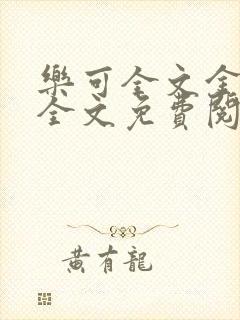 樂可全文全
全文免費閱
黃有龍